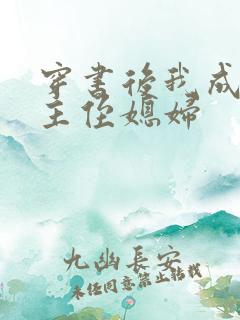 穿书後我成
主侄媳妇
九幽長安
未经同意禁止转载